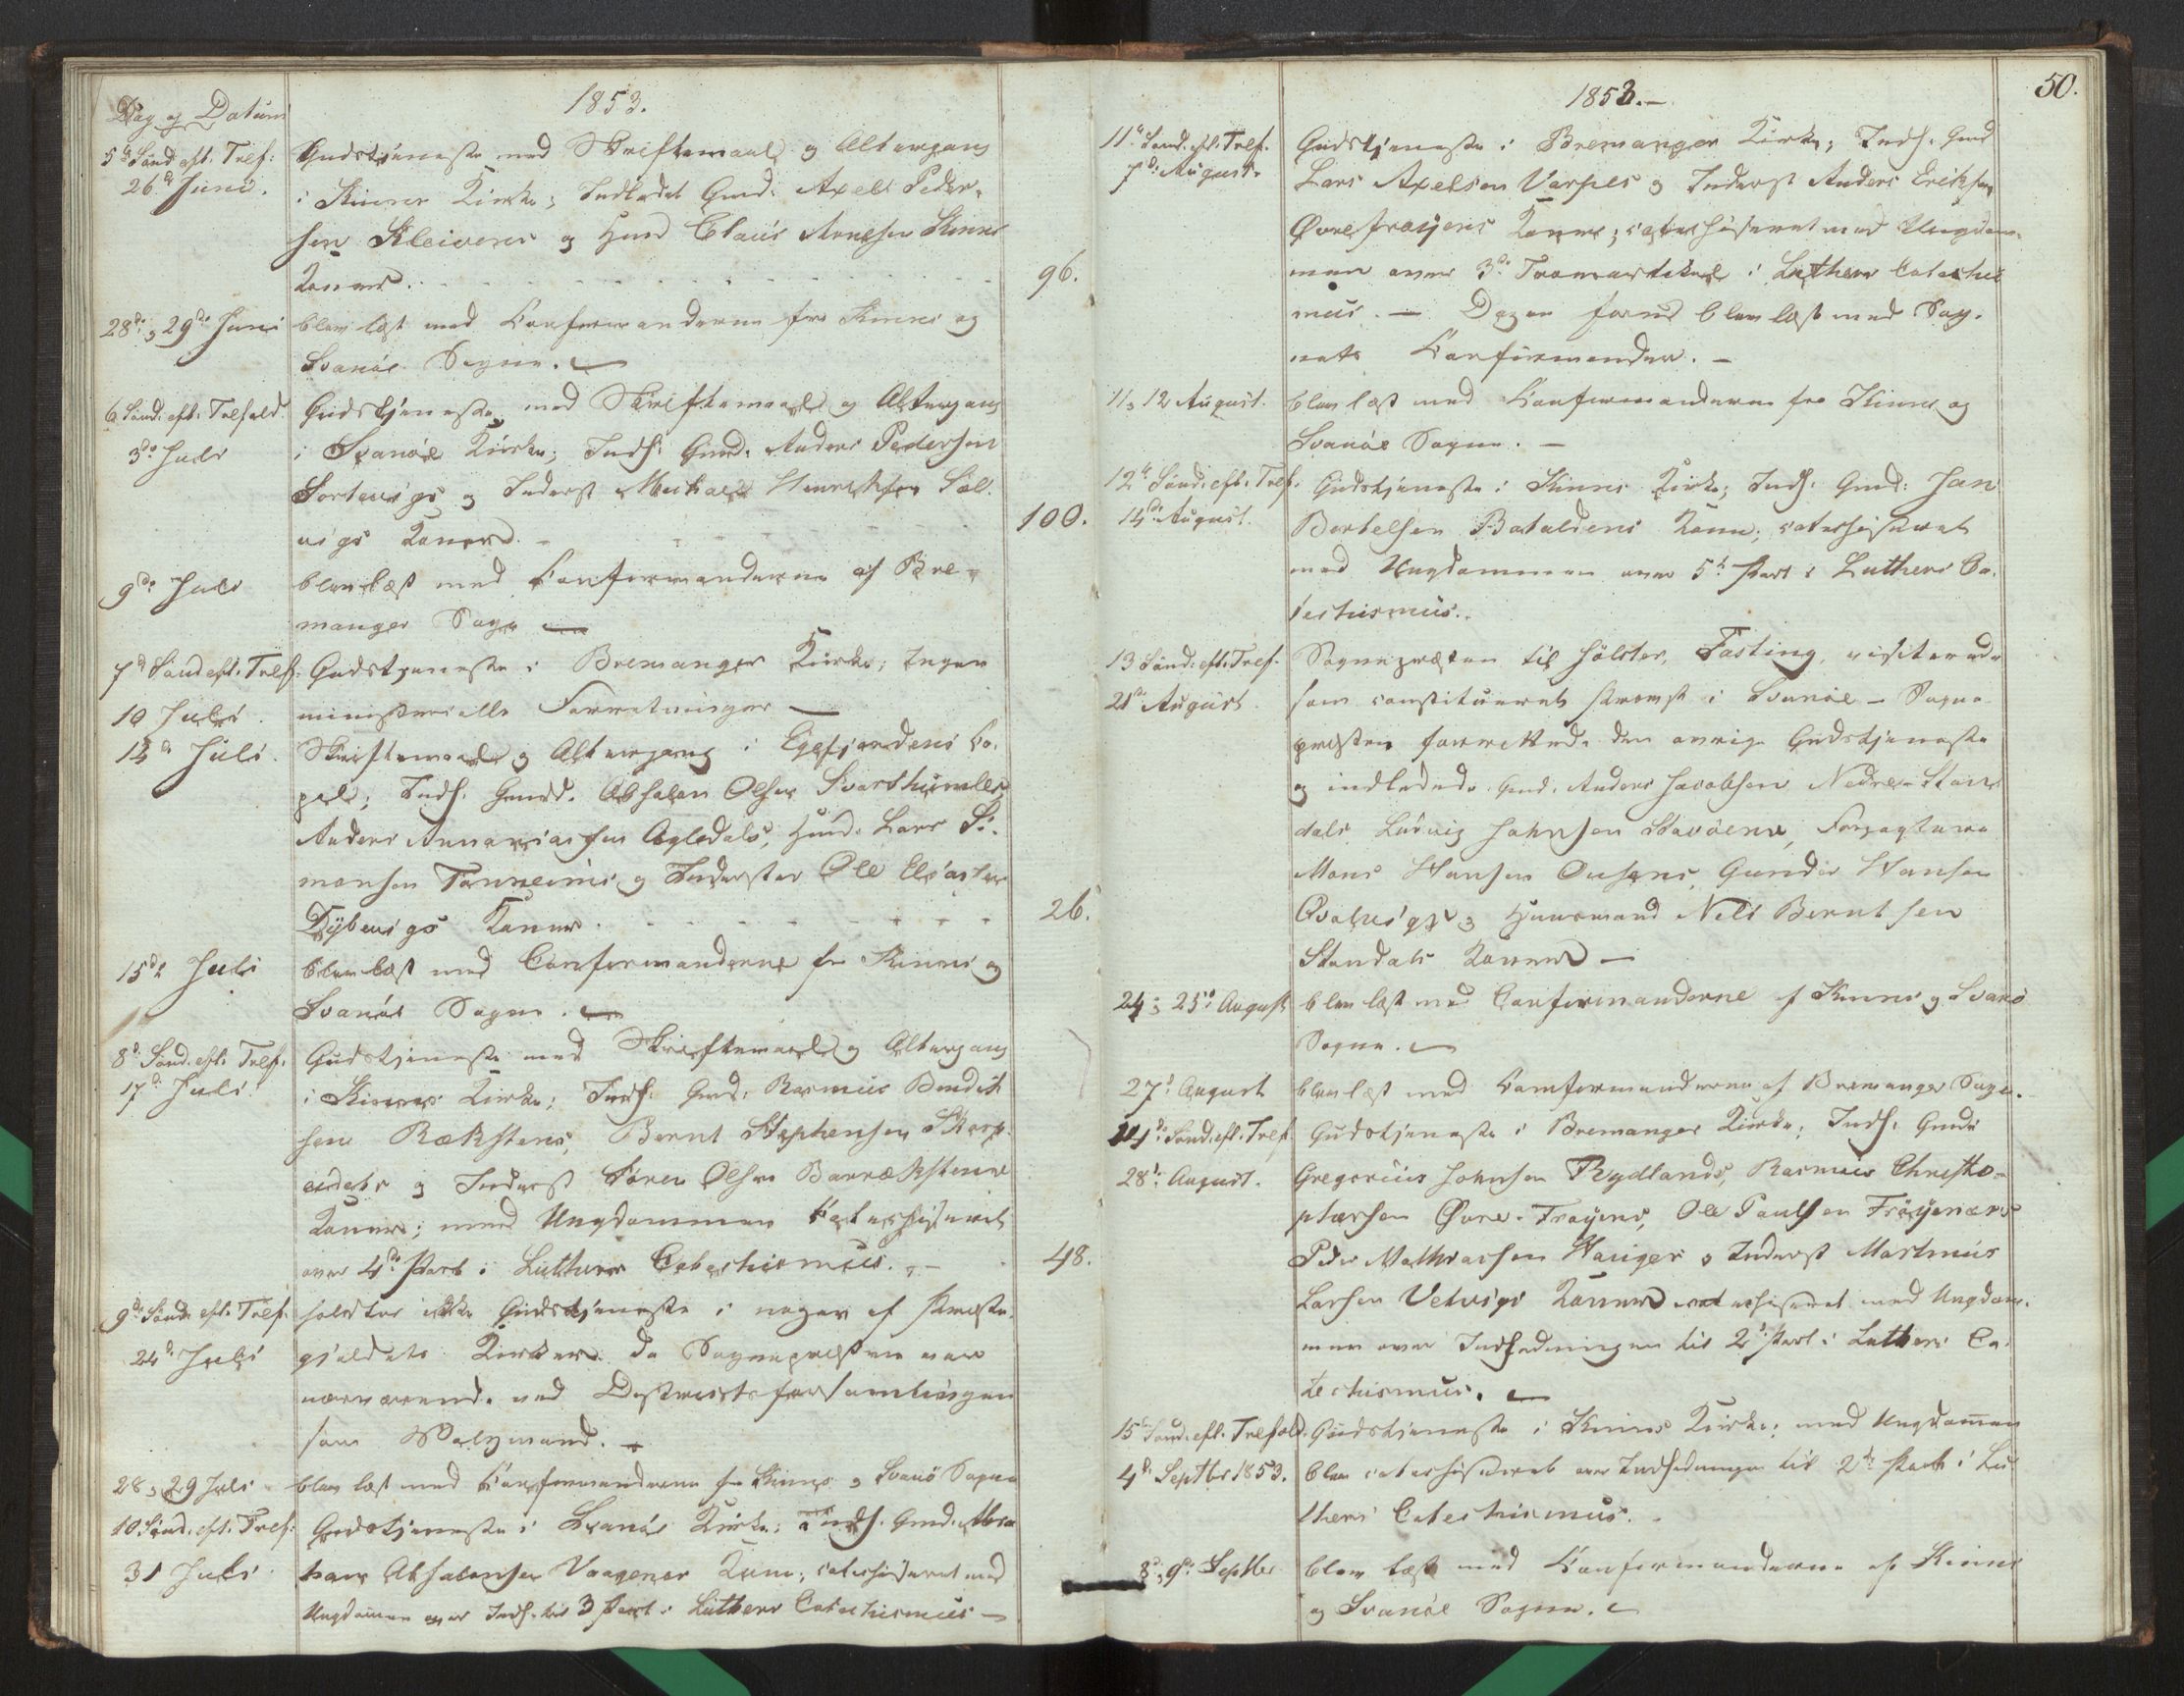 Dag og Datum
1853.
5te Sönd. eft. Tref:
26de Juni.
Gudstjeneste med Skriftemaal og Altergang
i Kinns Kirke; Indledet Gmd: Axel Peder-
sen Kleivens og Huusmd Claus Arnesen Kinns
Koner.
96.
28de og 29de Juni
blev læst med Confirmanderne fra Kinns og
Svanöe Sogne.
6 Sönd. eft. Trefold.
3de Juli
Gudstjeneste med Skriftemaal og Altergang
i Svanöe Kirke; Indl: Gmd. Anders Pedersen
Sortevigs og Inderst Michael Henriksen Söl-
vigs Koner.
100.
9de Juli
blev læst med Confirmanderne af Bre-
manger Sogn
7de Sönd. eft. Tref.
10 Juli.
Gudstjeneste i Bremanger Kirke; Ingen
ministerielle Forretninger
13de Juli.
Skriftemaal og Altergang i Eqefjordens Ca-
pel; Indl. Gmdd. Absalon Olsen Svarthumles
Anders Annaniassen Agledals, Huusmd. Lars Si-
monsen Tonheims og Inderster Ole Eliassen
Dybevigs Koner.
26.
15de Juli
blev læst med Confirmanderne fra Kinns og
Svanöe Sogne.
8de Sönd. eft. Tref.
17de Juli
Gudstjeneste med Skriftemaal og Altergang
i Kinns Kirke; Indl. Gmd. Rasmus Bendik
sen Rækstens, Bernt Stephensen Skorp-
eidets og Inderst Sören Olsen Barrækstens
Koner; med Ungdommen Catechiseret
over 4de Part i Luthers Catechismus.
48.
9de Sönd. eft. Tref.
24de Juli
holdtes ikke Gudstjeneste i nogen af Præste-
gjeldets Kirker da Sognepræsten var
nærværende ved Distriktsforsamlingen
som Valgmand.
28 og 29 Juli
blev læst med Confirmanderne fra Kinns og Svanö Sogne
10 Sönd. eft. Tref:
31 Juli
Gudstjeneste i Svanöe Kirke; Indl. Gmd. Abra
ham Absalonsen Vaagenes Kone; catechiseret med
Ungdommen over Indl. til 3 Part i Luthers Catechismus
1853.
50.
11te Sönd. eft. Tref.
7de August.
Gudstjeneste i Bremanger Kirke; Indl. Gmd
Lars Axelsen Varpes og Inderst Anders Eriksen
Övrefröyens Koner; catechiseret med Ungdom-
men over 3de Troesartikel i Luthers Catechis
mus. Dagen forud blev læst med Sog-
nets Confirmander.
11 og 12 August.
blev læst med Confirmanderne fra Kinns og
Svanöe Sogne.
12te Sönd. eft. Tref.
14de August.
Gudstjeneste i Kinns Kirke; Indl. Gmd: Jan
Bertelsen Bataldens Kone; catechiseret
med Ungdommen over 5te Part i Luthers Ca-
techismus.
13 Sönd. eft. Tref.
21de August
Sognepræsten til Jölster, Fasting, visiterede
som constitueret Provst i Svanöe Sogne
præsten forrettede den övrige Gudstjeneste
og indledede Gmd. Anders Jacobsen Nedre-Stan-
dals Ludvig Johnsen Stavöens, Forpagterne
Mons Hansen Ousens, Gunder Hansen
Qvalvigs og Huusmand Nils Berntsen
Standals Koner
24 og 25de August
blev læst med Confirmanderne af Kinns og Svanö
Sogne.
27de August
blev læst med Confirmanderne af Bremanger Sogn.
14de Sönd. eft. Tref.
28de August.
Gudstjeneste i Bremanger Kirke; Indl. Gmdd
Gregorius Johnsen Rydlands, Rasmus Christo-
phersen Övre-Fröyens, Ole Paulsen Fröyenæs
Peder Mathiassen Hauges og Inderst Martinus
Larsen Vetvigs Koner catechiseret med Ungdom-
men over Indledningen til 2de Part i Luthers Ca-
techismus.
15de Sönd. eft. Trefold.
4de Septbr 1853.
Gudstjeneste i Kinns Kirke; med Ungdommen
blev catechiseret over Indledningen til 2de Part i Lu-
thers Catechismus.
8de og 9de Septbr
blev læst med Confirmanderne af Kinns
og Svanöe Sogne.